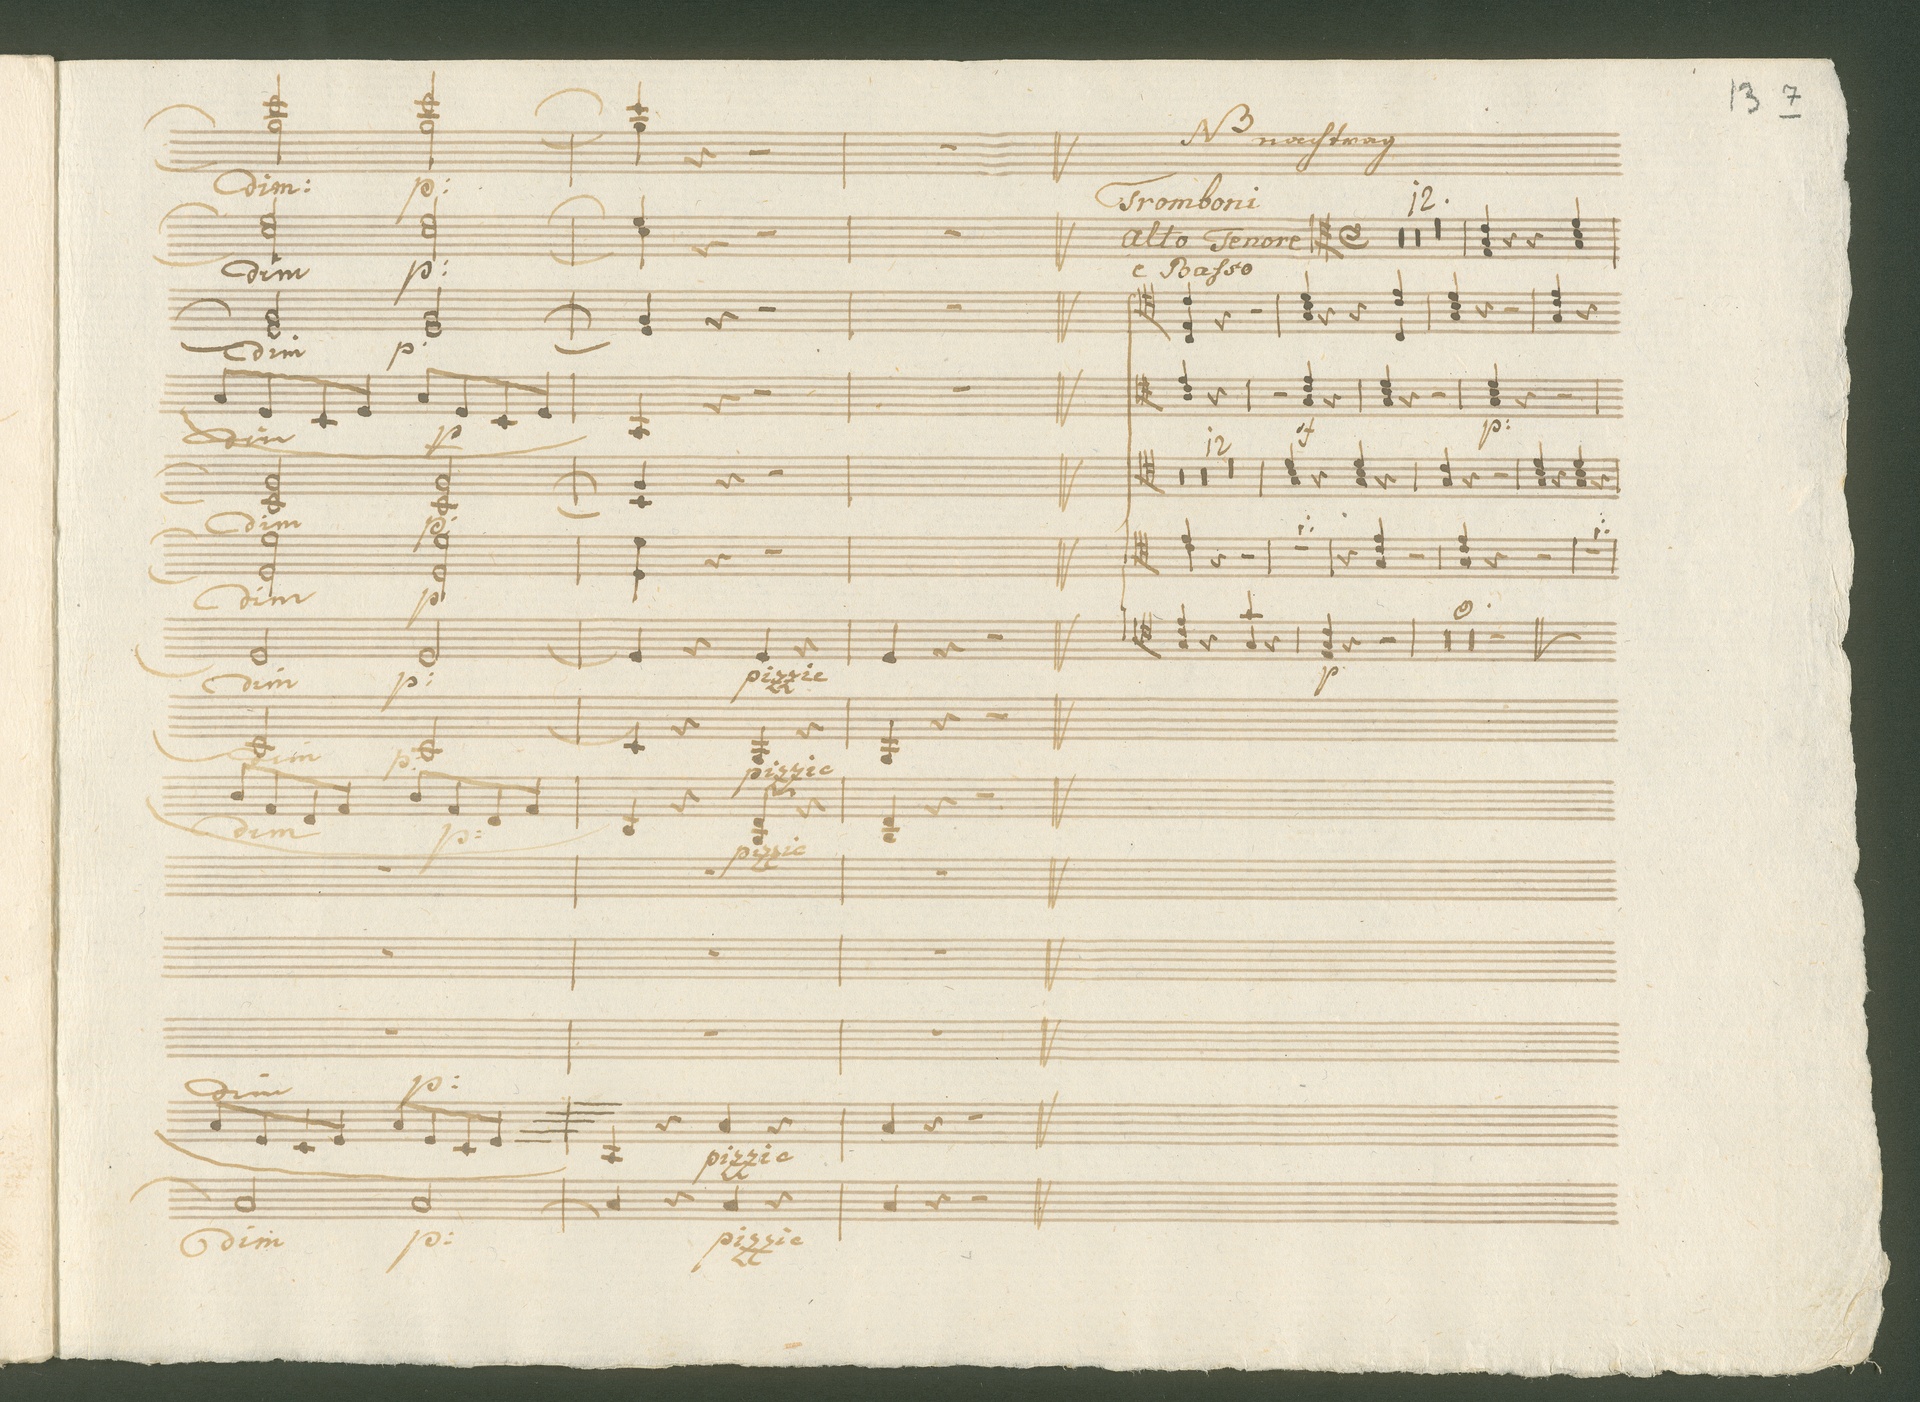 13 7
NB nachtrag
dim: p:
Tromboni
12.
Alto Tenore
dim p:
e Basso
dim p:
dim p
f p:
12
dim p:
dim p
dim p: pizzic
p
dim p: pizzic
dim p: pizzic
dim p:
pizzic
dim p: pizzic